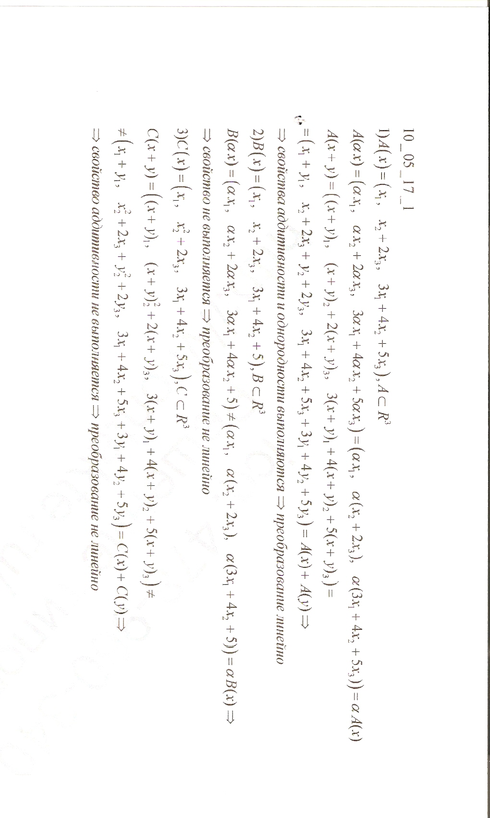 10_05_17_1
1)A(x) = (x₁, x₂ + 2x₃, 3x₁ + 4x₂ + 5x₃), A ⊂ R³
A(αx) = (αx₁, αx₂ + 2αx₃, 3αx₁ + 4αx₂ + 5αx₃) = (αx₁, α(x₂ + 2x₃), α(3x₁ + 4x₂ + 5x₃)) = αA(x)
A(x + y) = ((x + y)₁, (x + y)₂ + 2(x + y)₃, 3(x + y)₁ + 4(x + y)₂ + 5(x + y)₃) =
= (x₁ + y₁, x₂ + 2x₃ + y₂ + 2y₃, 3x₁ + 4x₂ + 5x₃ + 3y₁ + 4y₂ + 5y₃) = A(x) + A(y) ⇒
⇒ свойства аддитивности и однородности выполняются ⇒ преобразование линейно
2)B(x) = (x₁, x₂ + 2x₃, 3x₁ + 4x₂ + 5), B ⊂ R³
B(αx) = (αx₁, αx₂ + 2αx₃, 3αx₁ + 4αx₂ + 5) ≠ (αx₁, α(x₂ + 2x₃), α(3x₁ + 4x₂ + 5)) = αB(x) ⇒
⇒ свойство не выполняется ⇒ преобразование не линейно
3)C(x) = (x₁, x₂² + 2x₃, 3x₁ + 4x₂ + 5x₃), C ⊂ R³
C(x + y) = ((x + y)₁, (x + y)₂² + 2(x + y)₃, 3(x + y)₁ + 4(x + y)₂ + 5(x + y)₃) ≠
≠ (x₁ + y₁, x₂² + 2x₃ + y₂² + 2y₃, 3x₁ + 4x₂ + 5x₃ + 3y₁ + 4y₂ + 5y₃) = C(x) + C(y) ⇒
⇒ свойство аддитивности не выполняется ⇒ преобразование не линейно